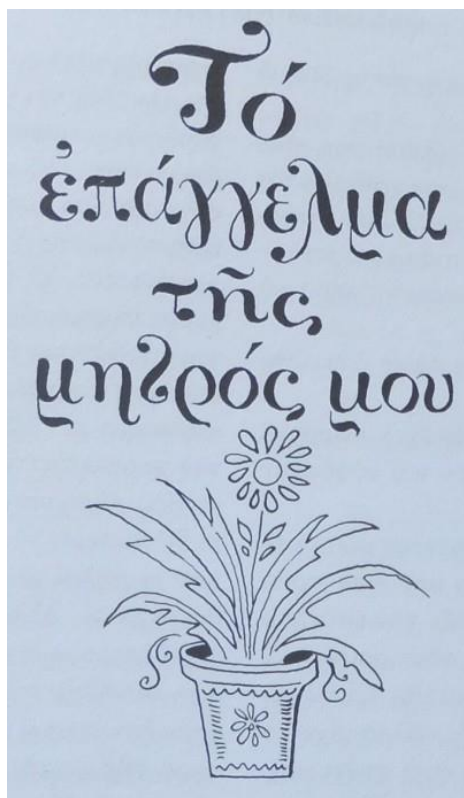 Τό
ἐπάγγελμα
τῆς
μητρός μου